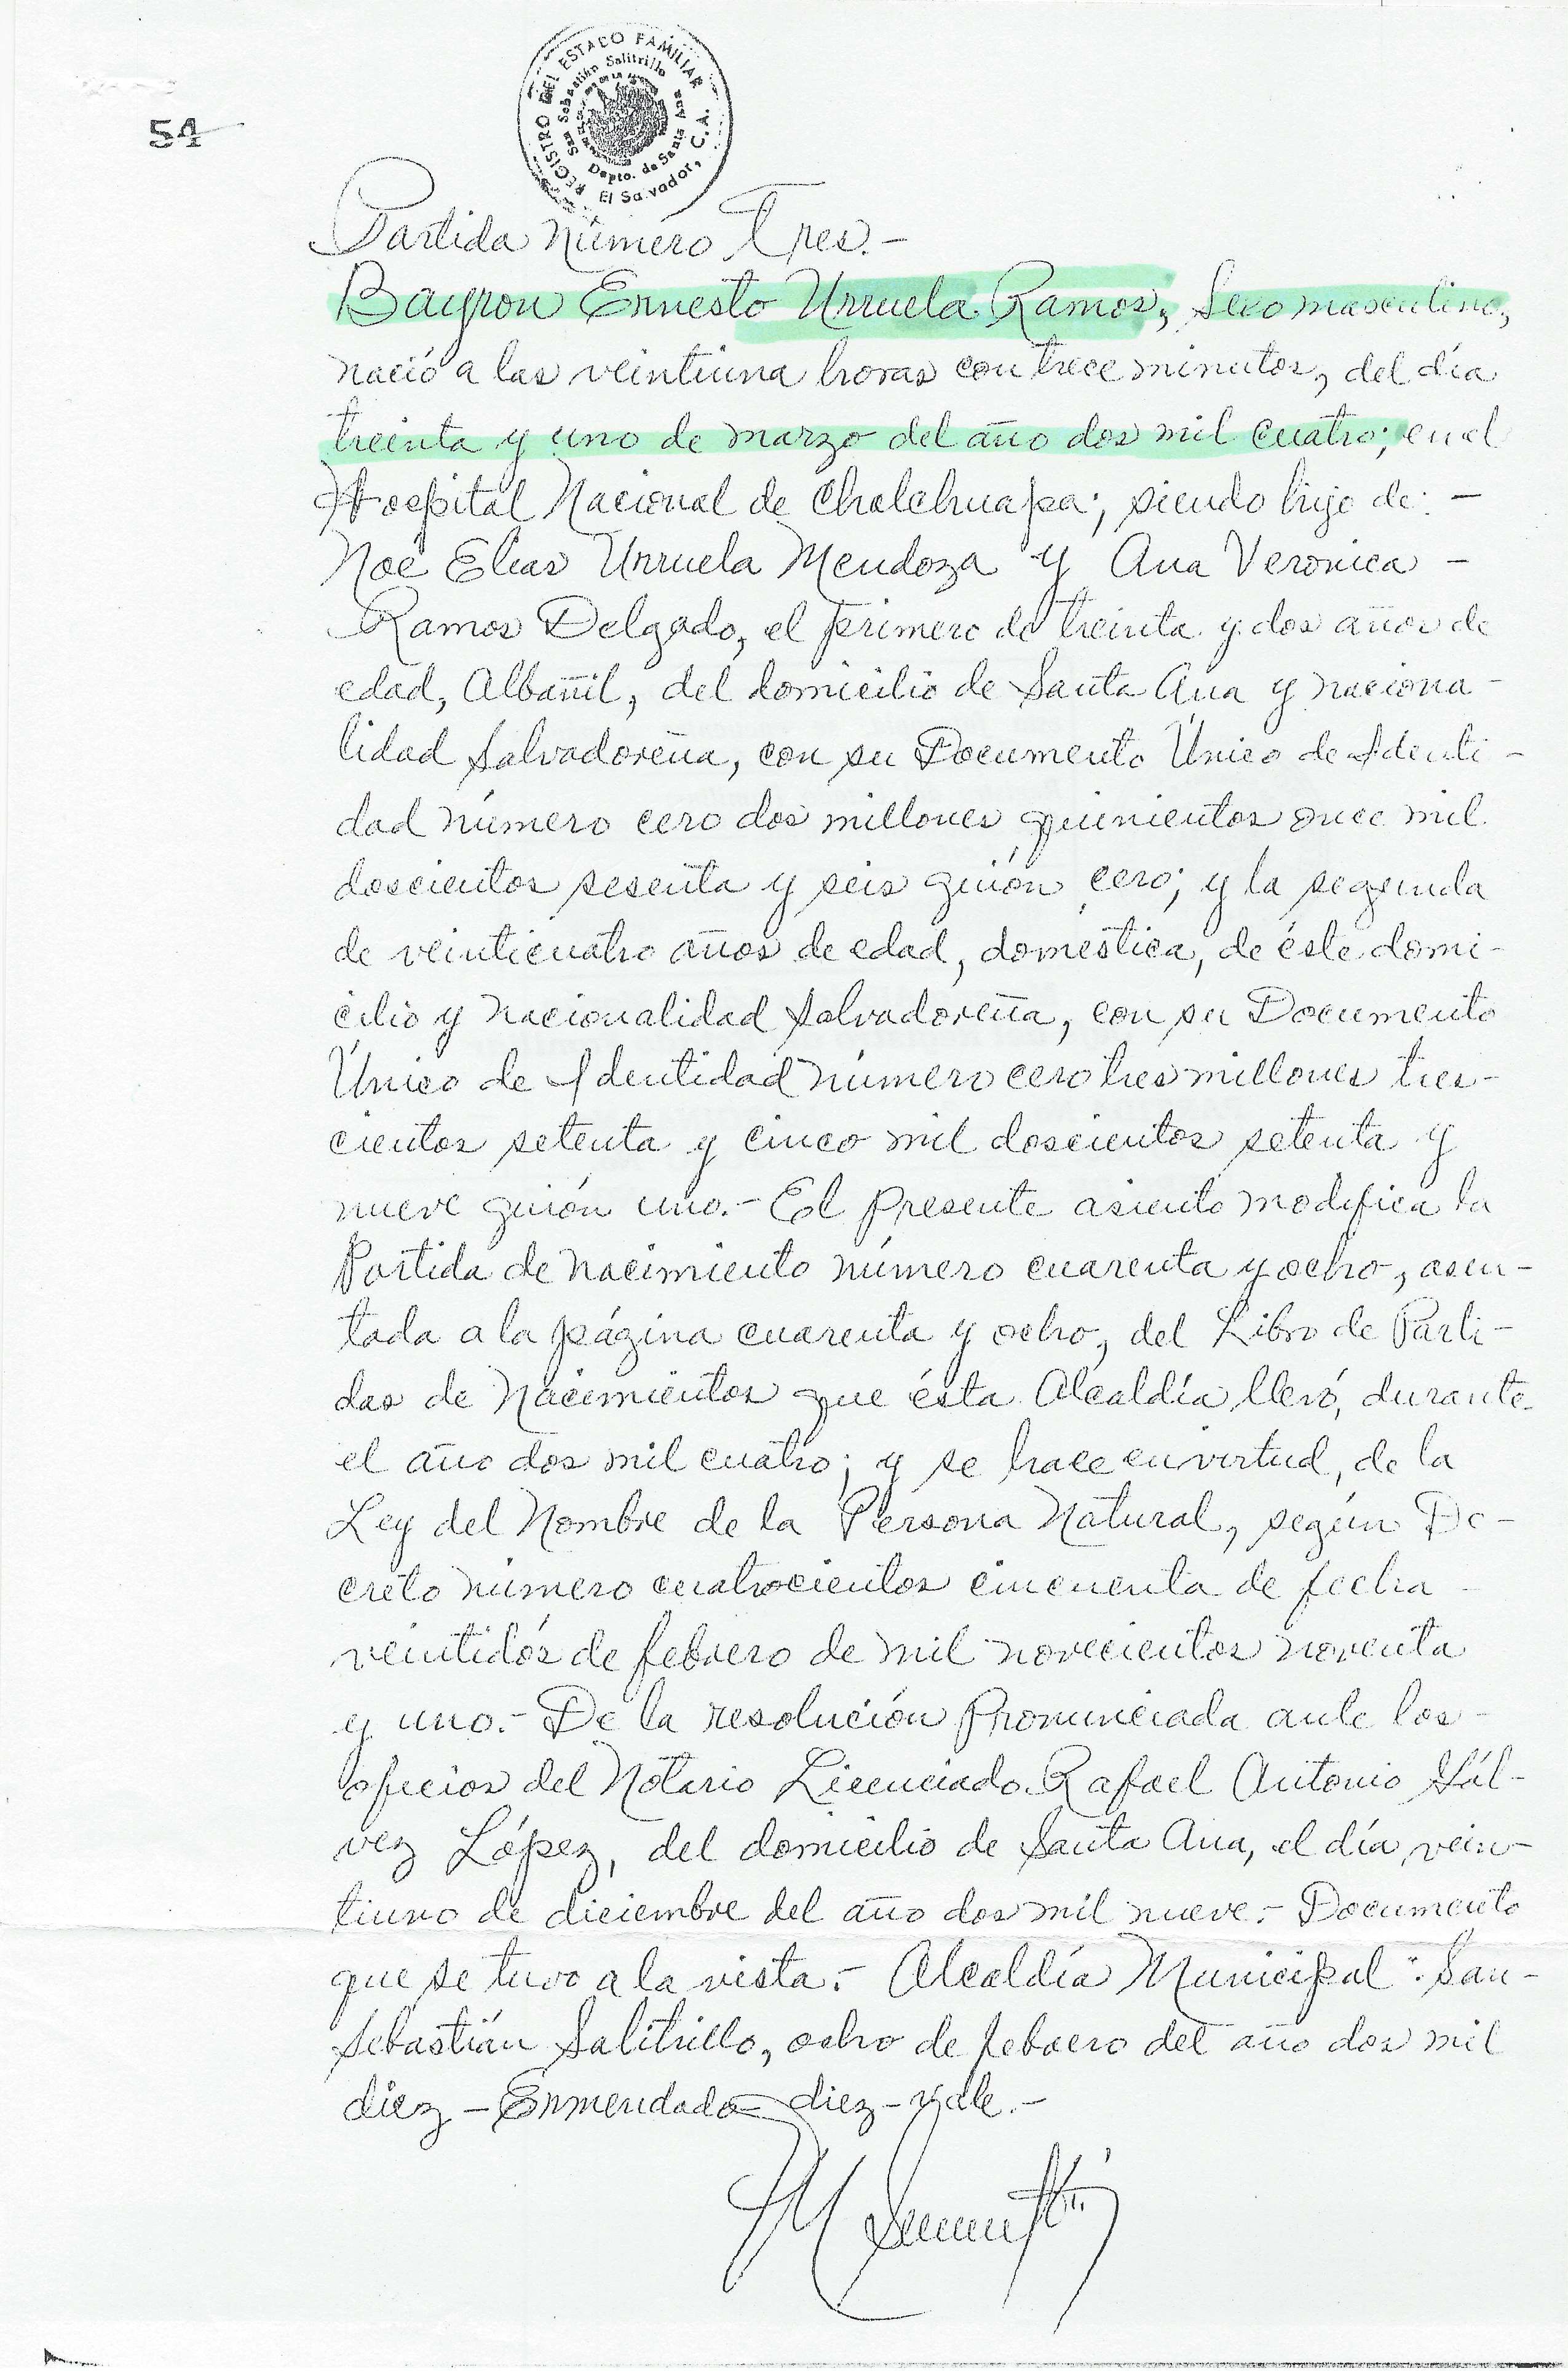 54
REGISTRO DEL ESTADO FAMILIAR
San Sebastián Salitrillo
Depto. de Santa Ana
El Salvador, C.A.
Partida Número Tres.-
Bayron Ernesto Urruela Ramos, Sexo masculino,
nació a las veintiuna horas con trece minutos, del día
treinta y uno de marzo del año dos mil cuatro; en el
Hospital Nacional de Chalchuapa; siendo hijo de: -
Noé Elias Urruela Mendoza y Ana Veronica -
Ramos Delgado, el primero de treinta y dos años de
edad, Albañil, del domicilio de Santa Ana y naciona-
lidad Salvadoreña, con su Documento Único de Identi-
dad número cero dos millones quinientos once mil
doscientos sesenta y seis guión cero; y la segunda
de veinticuatro años de edad, doméstica, de éste domi-
cilio y nacionalidad Salvadoreña, con su Documento
Único de Identidad número cero tres millones tres-
cientos setenta y cinco mil doscientos setenta y
nueve guión uno.- El presente asiento modifica la
Partida de Nacimiento número cuarenta y ocho, asen-
tada a la página cuarenta y ocho, del Libro de Parti-
das de Nacimientos que ésta Alcaldía llevó, durante
el año dos mil cuatro; y se hace en virtud, de la
Ley del Nombre de la Persona Natural, según De-
creto número cuatrocientos cincuenta de fecha -
veintidós de febrero de mil novecientos noventa
y uno.- De la resolución pronunciada ante los -
oficios del Notario Licenciado Rafael Antonio Gál-
vez López, del domicilio de Santa Ana, el día vein-
tiuno de diciembre del año dos mil nueve.- Documento
que se tuvo a la vista.- Alcaldía Municipal: San-
Sebastián Salitrillo, ocho de febrero del año dos mil
diez - Enmendado - diez - vale.-